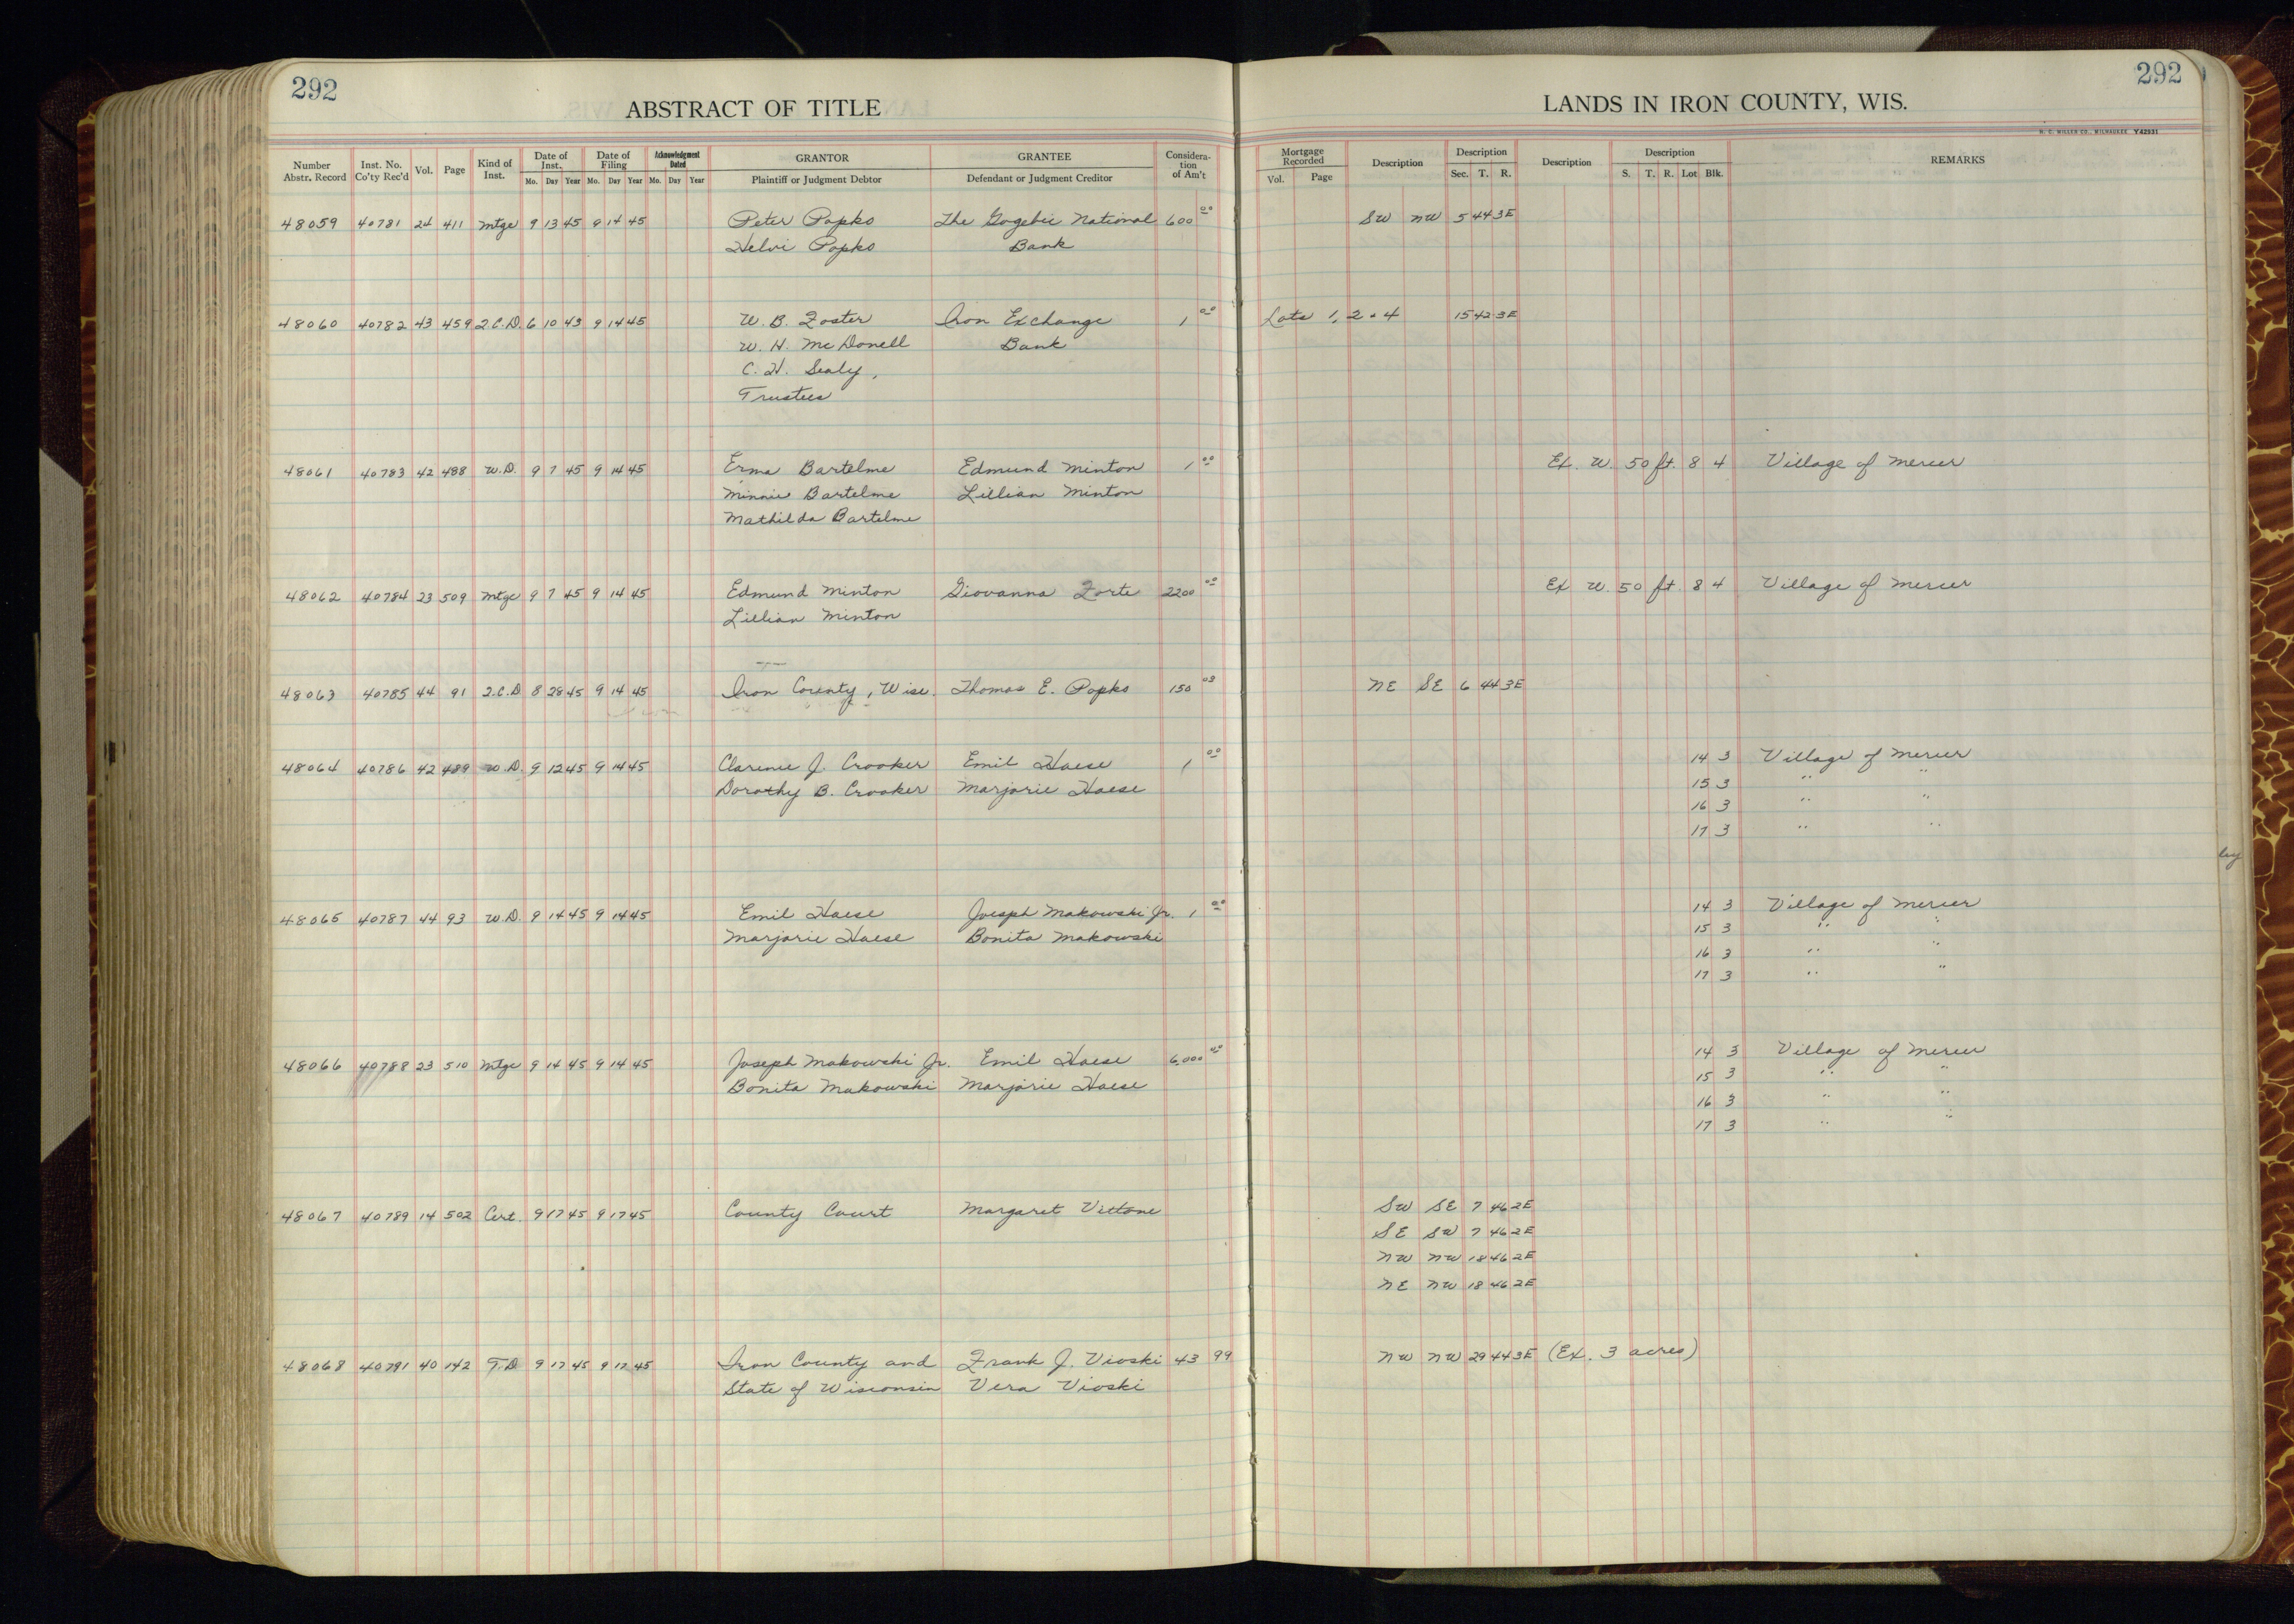 292
292
ABSTRACT OF TITLE
LANDS IN IRON COUNTY, WIS.
H. C. MILLER CO., MILWAUKEE Y42931
Number Abstr. Record Inst. No. Co'ty Rec'd Vol. Page Kind of Inst. Date of Inst. Mo. Day Year Date of Filing Mo. Day Year Acknowledgment Dated Mo. Day Year GRANTOR Plaintiff or Judgment Debtor GRANTEE Defendant or Judgment Creditor Consideration of Am't Mortgage Recorded Vol. Page Description Description Sec. T. R. Description Description S. T. R. Lot Blk. REMARKS
48059 40781 24 411 Mtge 9 13 45 9 14 45 Peter Popko The Gogebic National 600 00 SW NW 5 44 3E
Helvi Popko Bank
48060 40782 43 459 Q.C.D. 6 10 43 9 14 45 W. B. Foster Iron Exchange 1 00 Lots 1, 2 & 4 15 42 3E
W. H. McDonell Bank
C. H. Sealy,
Trustees
48061 40783 42 488 W.D. 9 7 45 9 14 45 Erma Bartelme Edmund Minton 1 00 Ex. W. 50 ft. 8 4 Village of Mercer
Minnie Bartelme Lillian Minton
Mathilda Bartelme
48062 40784 23 509 Mtge 9 7 45 9 14 45 Edmund Minton Giovanna Forte 2200 00 Ex W. 50 ft. 8 4 Village of Mercer
Lillian Minton
48063 40785 44 91 Q.C.D 8 28 45 9 14 45 Iron County, Wisc. Thomas E. Popko 150 03 NE SE 6 44 3E
48064 40786 42 489 W.D. 9 12 45 9 14 45 Clarence J. Crooker Emil Haese 1 00 14 3 Village of Mercer
Dorothy B. Crooker Marjorie Haese 15 3 " "
16 3 " "
17 3 " "
48065 40787 44 93 W.D. 9 14 45 9 14 45 Emil Haese Joesph Makowski Jr. 1 00 14 3 Village of Mercer
Marjorie Haese Bonita Makowski 15 3 " "
16 3 " "
17 3 " "
48066 40788 23 510 Mtge 9 14 45 9 14 45 Joseph Makowski Jr. Emil Haese 6,000 00 14 3 Village of Mercer
Bonita Makowski Marjorie Haese 15 3 " "
16 3 " "
17 3 " "
48067 40789 14 502 Cert. 9 17 45 9 17 45 County Court Margaret Vittone SW SE 7 46 2E
SE SW 7 46 2E
NW NW 18 46 2E
NE NW 18 46 2E
48068 40791 40 142 T.D 9 17 45 9 17 45 Iron County and Frank J. Vioski 43 99 NW NW 29 44 3E (Ex. 3 acres)
State of Wisconsin Vera Vioski